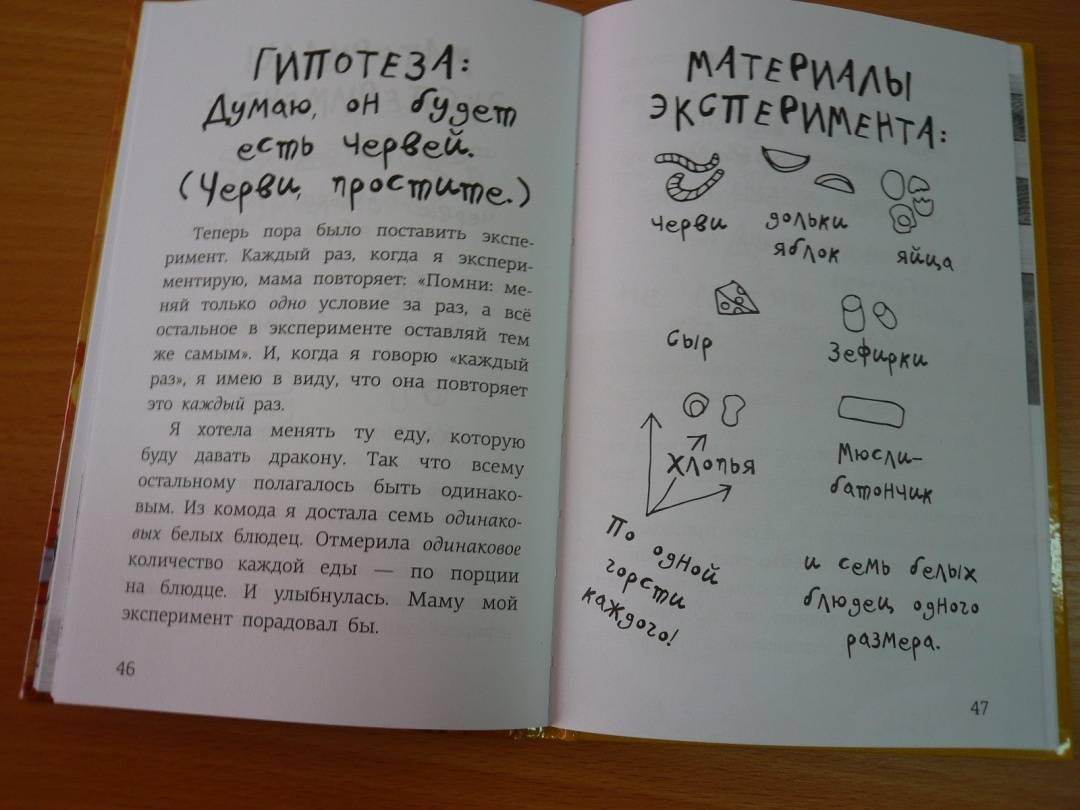 ГИПОТЕЗА:
Думаю, он будет
есть червей.
(Черви, простите.)
Теперь пора было поставить экспе-
римент. Каждый раз, когда я экспери-
ментирую, мама повторяет: «Помни: ме-
няй только одно условие за раз, а всё
остальное в эксперименте оставляй тем
же самым». И, когда я говорю «каждый
раз», я имею в виду, что она повторяет
это каждый раз.
Я хотела менять ту еду, которую
буду давать дракону. Так что всему
остальному полагалось быть одинако-
вым. Из комода я достала семь одинако-
вых белых блюдец. Отмерила одинаковое
количество каждой еды — по порции
на блюдце. И улыбнулась. Маму мой
эксперимент порадовал бы.
46
МАТЕРИАЛЫ
ЭКСПЕРИМЕНТА:
черви
дольки
яблок
яйца
сыр
Зефирки
хлопья
Мюсли-
батончик
По одной
горсти
каждого!
и семь белых
блюдец одного
размера.
47